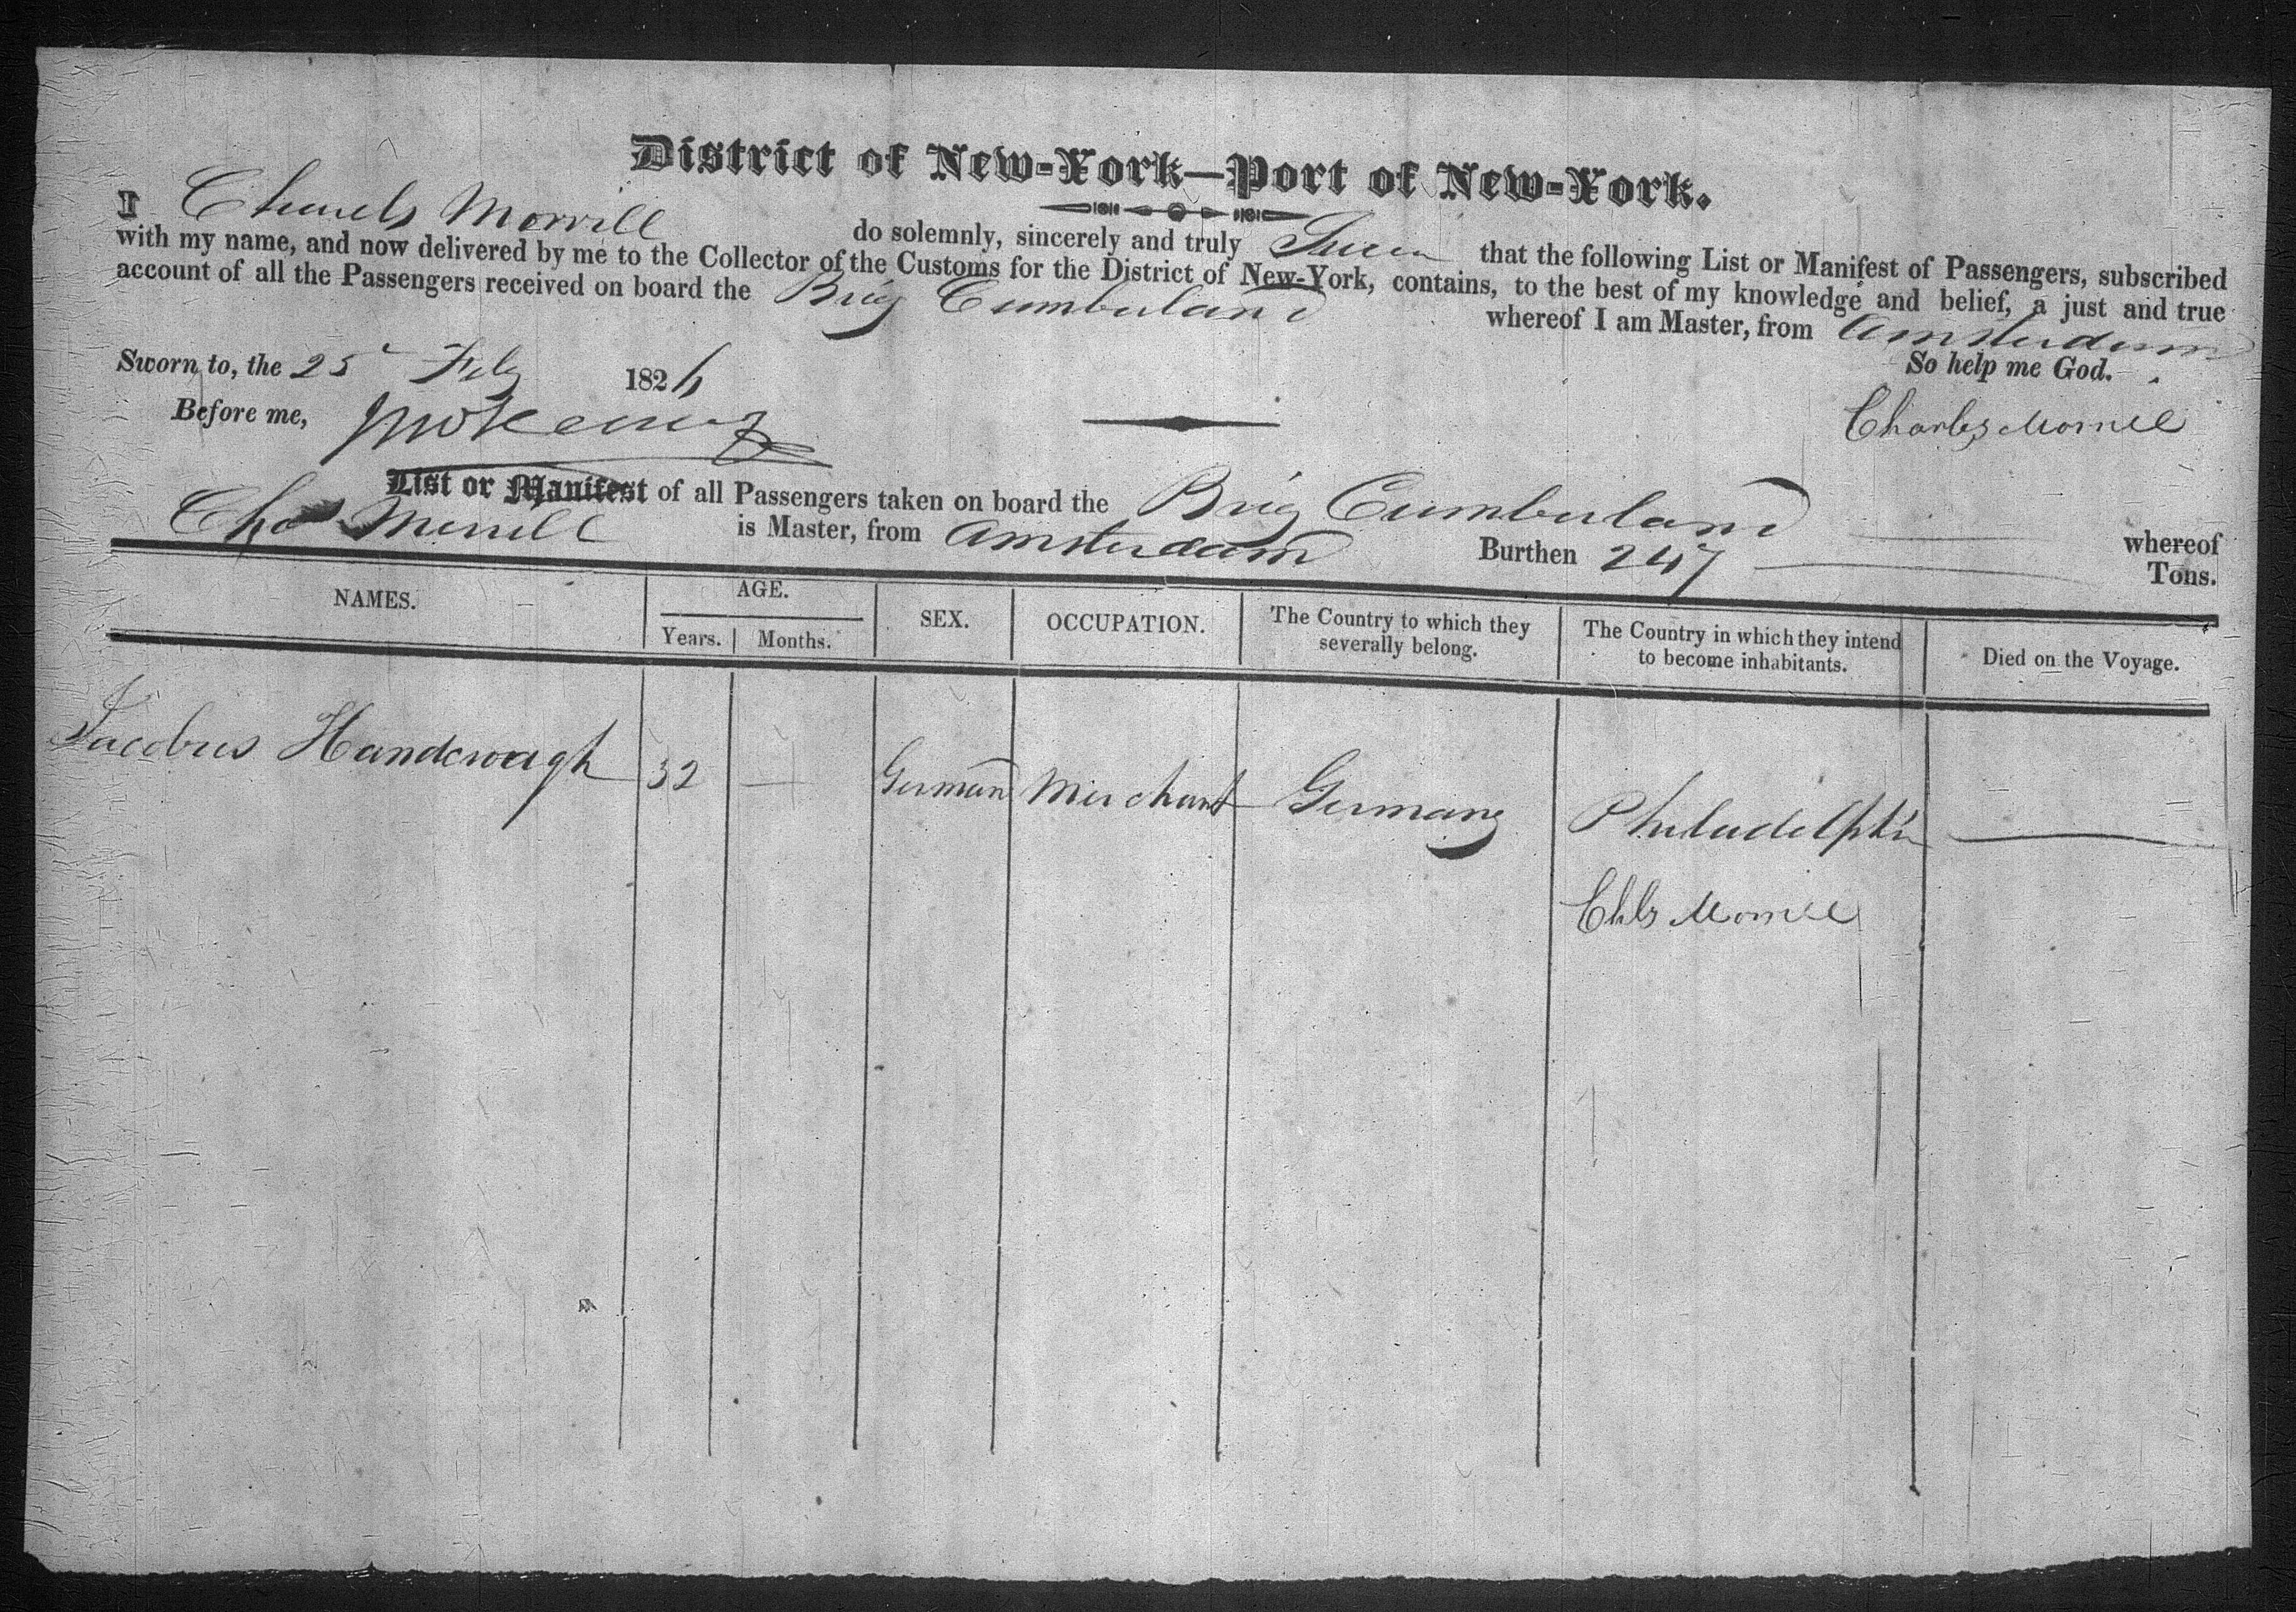 District of New-York—Port of New-York.
I Charels Morrill do solemnly, sincerely and truly Swear that the following List or Manifest of Passengers, subscribed
with my name, and now delivered by me to the Collector of the Customs for the District of New-York, contains, to the best of my knowledge and belief, a just and true
account of all the Passengers received on board the Brig Cumberland whereof I am Master, from Amsterdam
Sworn to, the 25 Feby 1826 So help me God.
Before me, Charles Morrill
List or Manifest of all Passengers taken on board the Brig Cumberland whereof
Chas Merrill is Master, from Amsterdam Burthen 247 Tons.
NAMES. AGE. SEX. OCCUPATION. The Country to which they severally belong. The Country in which they intend to become inhabitants. Died on the Voyage.
Years. Months.
Jacobus Handcwagh 32 — German Merchant Germany Philadelphia —
Chls Morrill